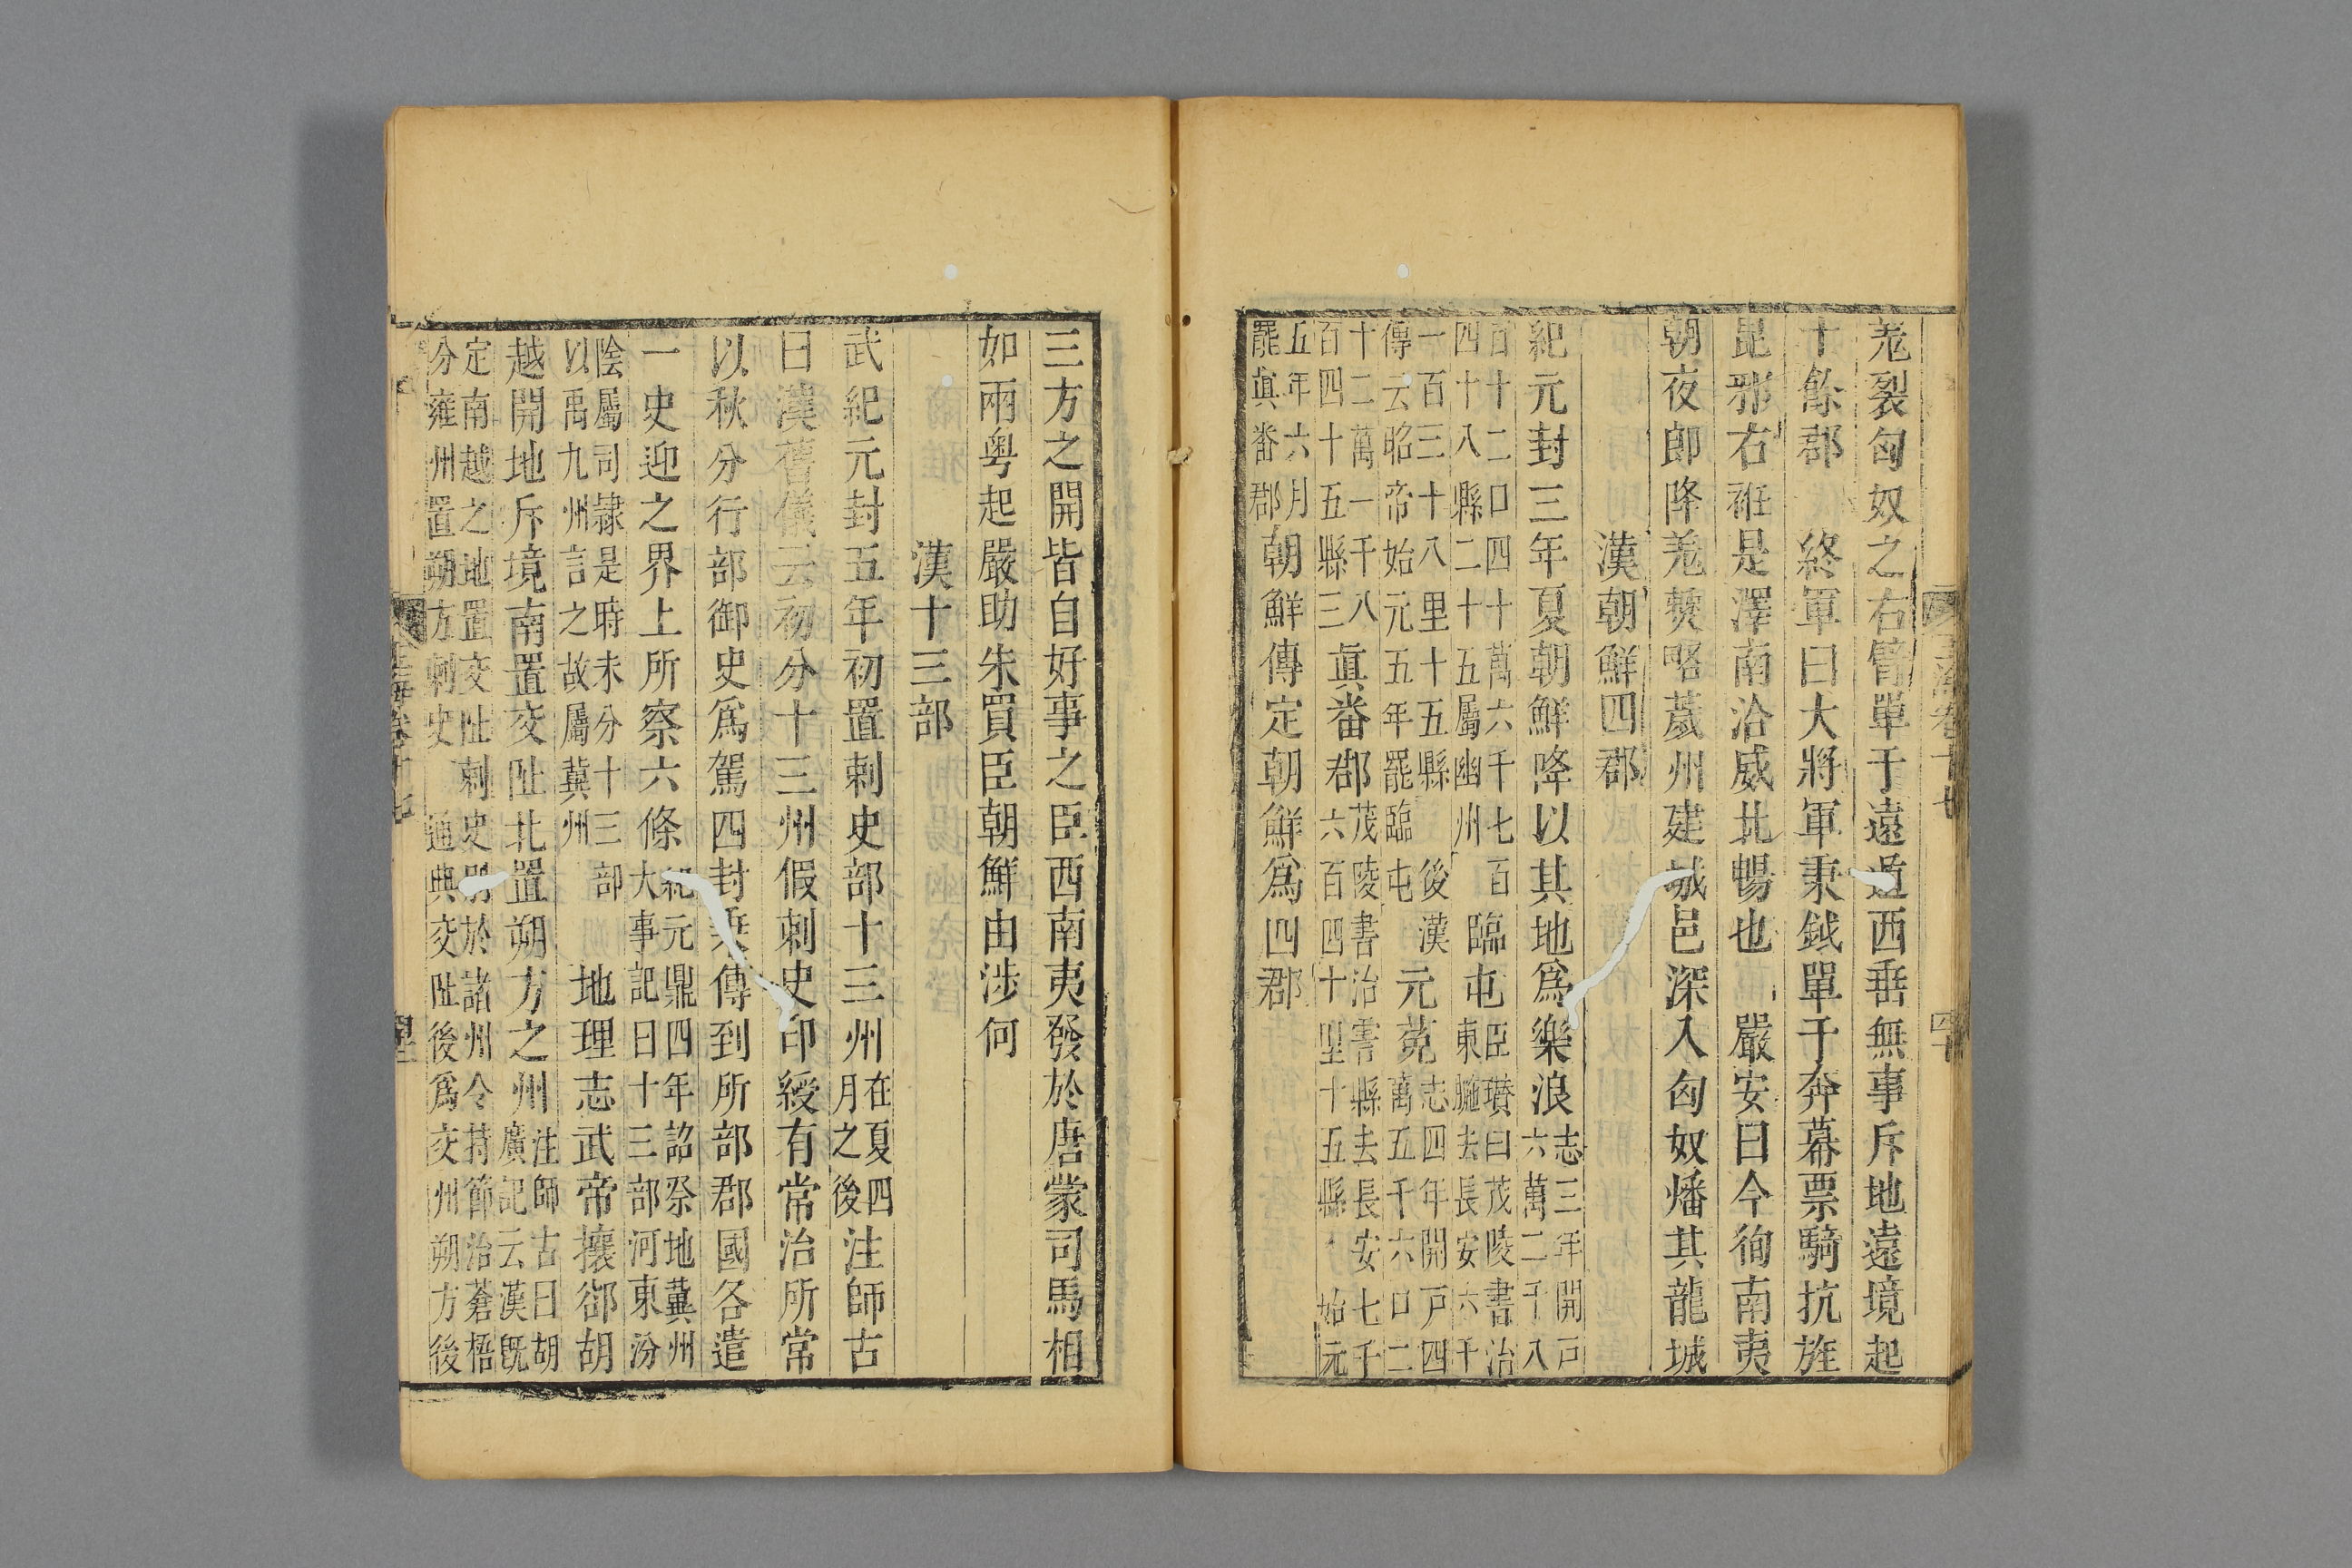 羗裂匈奴之右臂單于遠遁西垂無事斥地遠境起
十餘郡　終軍曰大將軍秉鉞單于奔幕票騎抗旌
昆邪右衽是澤南洽威北暢也　嚴安曰今徇南夷
朝夜郎降羗僰略薉州建城邑深入匈奴燔其龍城
漢朝鮮四郡
紀元封三年夏朝鮮降以其地爲樂浪志三年開戸六萬二千八
百十二口四十萬六千七百四十八縣二十五屬幽州臨屯臣瓚曰茂陵書治東暆去長安六千
一百三十八里十五縣　後漢傳云昭帝始元五年罷臨屯元菟志四年開戸四萬五千六口二
十二萬一千八百四十五縣三眞番郡茂陵書治霅縣去長安七千六百四十里十五縣　始元
五年六月罷眞番郡朝鮮傳定朝鮮爲四郡
三方之開皆自好事之臣西南夷發於唐蒙司馬相
如兩粤起嚴助朱買臣朝鮮由涉何
漢十三部
武紀元封五年初置刺史部十三州在夏四月之後注師古
曰漢舊儀云初分十三州假刺史印綬有常治所常
以秋分行部御史爲駕四封乘傳到所部郡國各遣
一史迎之界上所察六條紀元鼎四年詔祭地冀州大事記曰十三部河東汾
陰屬司隸是時未分十三部以禹九州言之故屬冀州　地理志武帝攘卻胡
越開地斥境南置交阯北置朔方之州注師古曰胡廣記云漢旣
定南越之地置交阯刺史別於諸州令持節治蒼梧分雍州置朔方刺史　通典交阯後爲交州朔方後